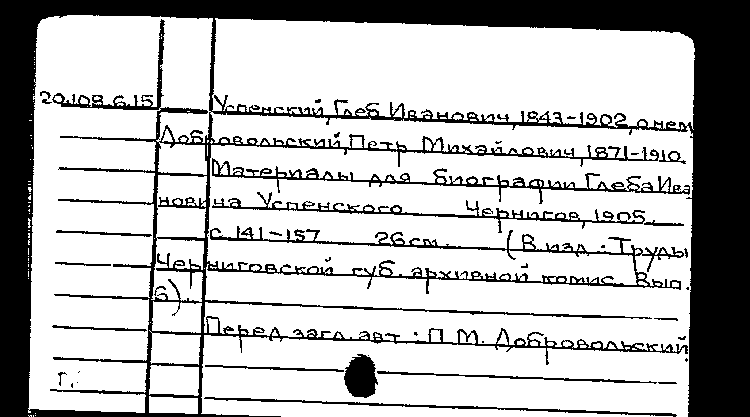 20.108.6.15 Успенский, Глеб Иванович, 1843-1902, о нем
Добровольский, Петр Михайлович, 1871-1910.
Материалы для биографии Глеба Ива
новича Успенского Чернигов, 1905.
с. 141-157 26 см. (В изд.: Труды
Черниговской губ. архивной комис. Вып.
6).
Перед загл. авт.: П. М. Добровольский
Г.